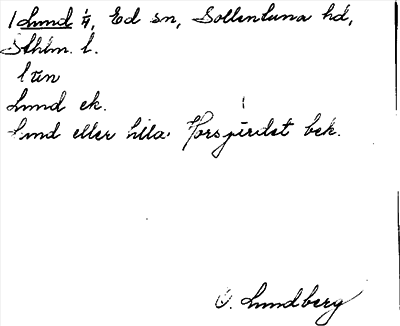 1 Lund ¼, Ed sn, Sollentuna hd,
Sthlm. l.
1 tin
Lund ek.
Lund eller lilla Horspirdet bek.
O. Lundberg